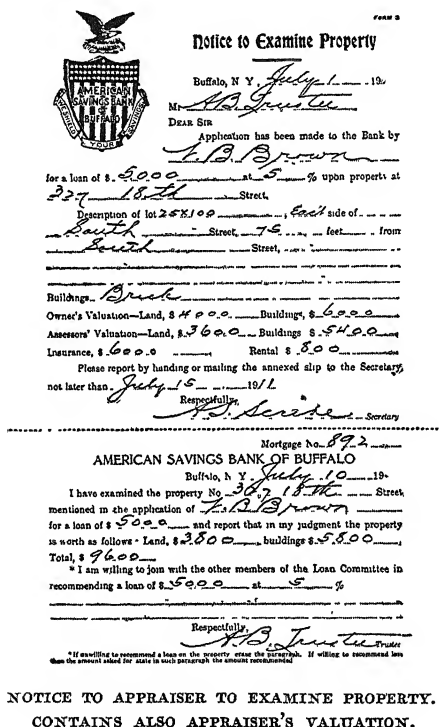 FORM 2
Notice to Examine Property
AMERICAN SAVINGS BANK OF BUFFALO
WE SHIELD YOUR SAVINGS
Buffalo, N Y, July 1 19
Mr A B Trustee
DEAR SIR
Application has been made to the Bank by
F. B. Brown
for a loan of $ 5000 at 5 % upon property at
327 18th Street,
Description of lot 25X100, East side of
South Street, 75 feet from
South Street,
Buildings Brick
Owner's Valuation—Land, $ 4000 Buildings, $ 6000
Assessors' Valuation—Land, $ 3600 Buildings $ 5400
Insurance, $ 6000 Rental $ 800
Please report by handing or mailing the annexed slip to the Secretary,
not later than July 15 1911
Respectfully,
A. Scribe Secretary
Mortgage No. 892
AMERICAN SAVINGS BANK OF BUFFALO
Buffalo, N Y. July 10 19
I have examined the property No 307 18th Street,
mentioned in the application of F. B Brown
for a loan of $ 5000 and report that in my judgment the property
is worth as follows · Land, $ 3800 buildings $ 5800
Total, $ 9600
* I am willing to join with the other members of the Loan Committee in
recommending a loan of $ 5000 at 5 %
Respectfully,
A. B. Trustee Trustee
*If unwilling to recommend a loan on the property erase the paragraph. If willing to recommend less
than the amount asked for state in such paragraph the amount recommended
NOTICE TO APPRAISER TO EXAMINE PROPERTY.
CONTAINS ALSO APPRAISER'S VALUATION.